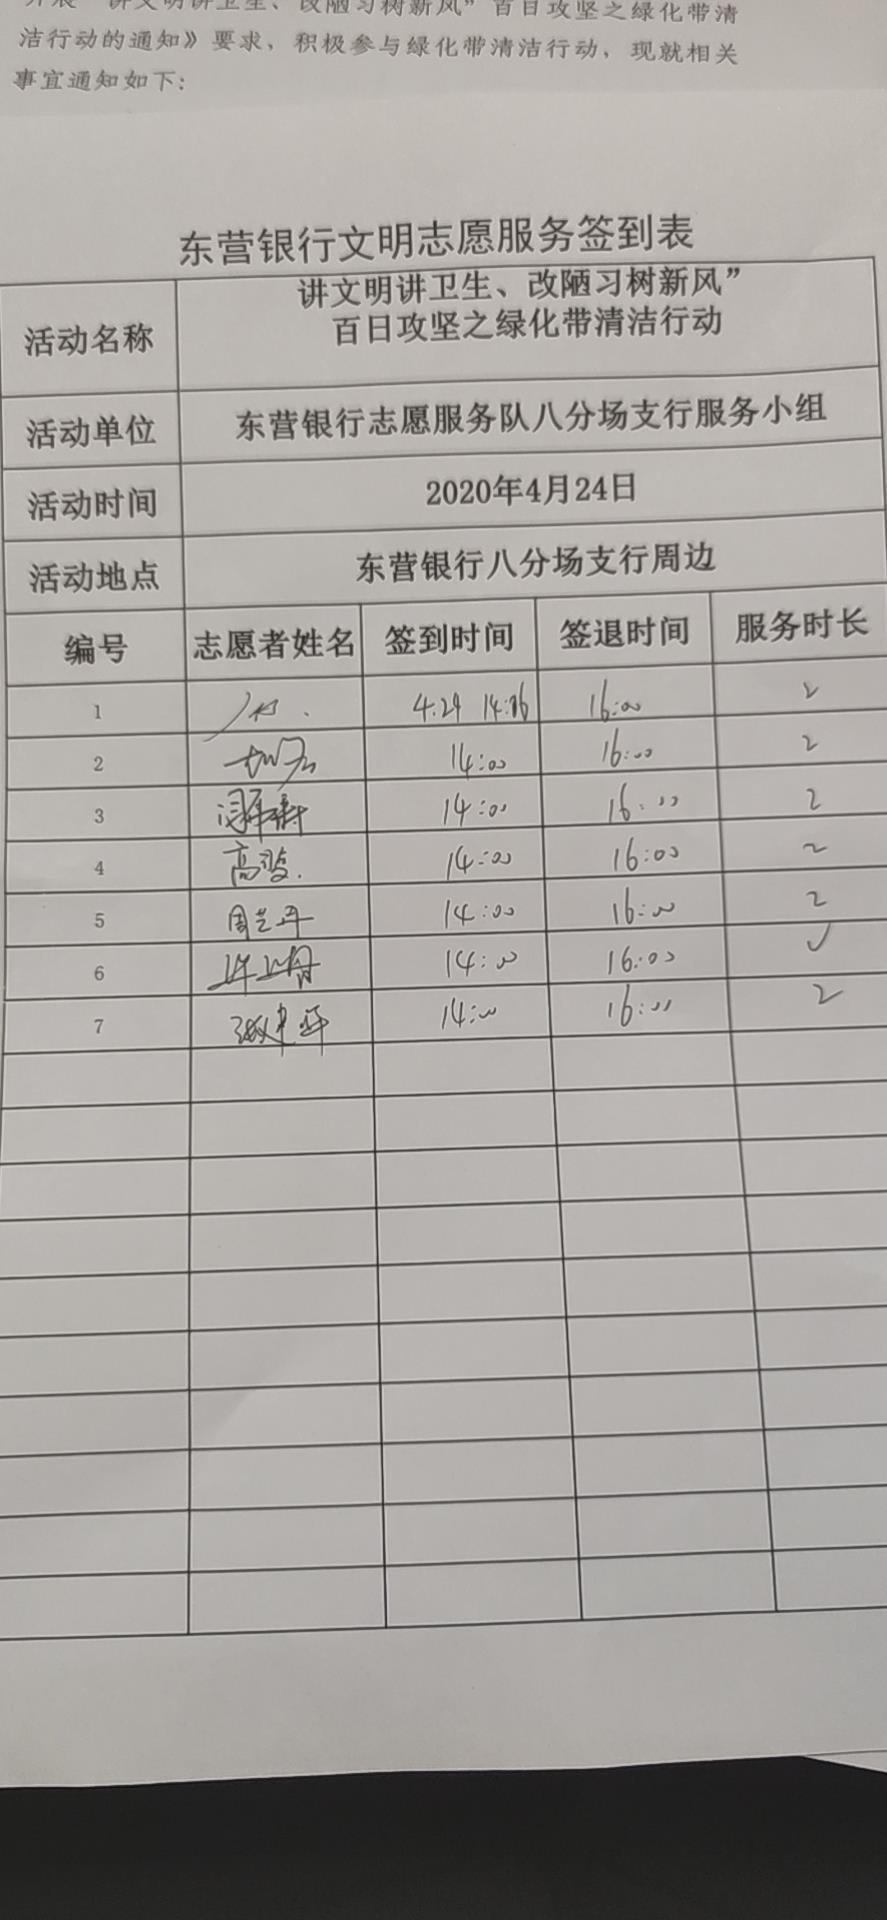 开展“讲文明讲卫生、改陋习树新风”百日攻坚之绿化带清
洁行动的通知》要求，积极参与绿化带清洁行动，现就相关
事宜通知如下：
东营银行文明志愿服务签到表
活动名称 讲文明讲卫生、改陋习树新风”
百日攻坚之绿化带清洁行动
活动单位 东营银行志愿服务队八分场支行服务小组
活动时间 2020年4月24日
活动地点 东营银行八分场支行周边
编号 志愿者姓名 签到时间 签退时间 服务时长
1 16:00 2
2 14:00 16:00 2
3 14:00 16:00 2
4 高 14:00 16:00 2
5 周兰平 14:00 16:00 2
6 14:00 16:00 ✓
7 张建平 14:00 16:00 2